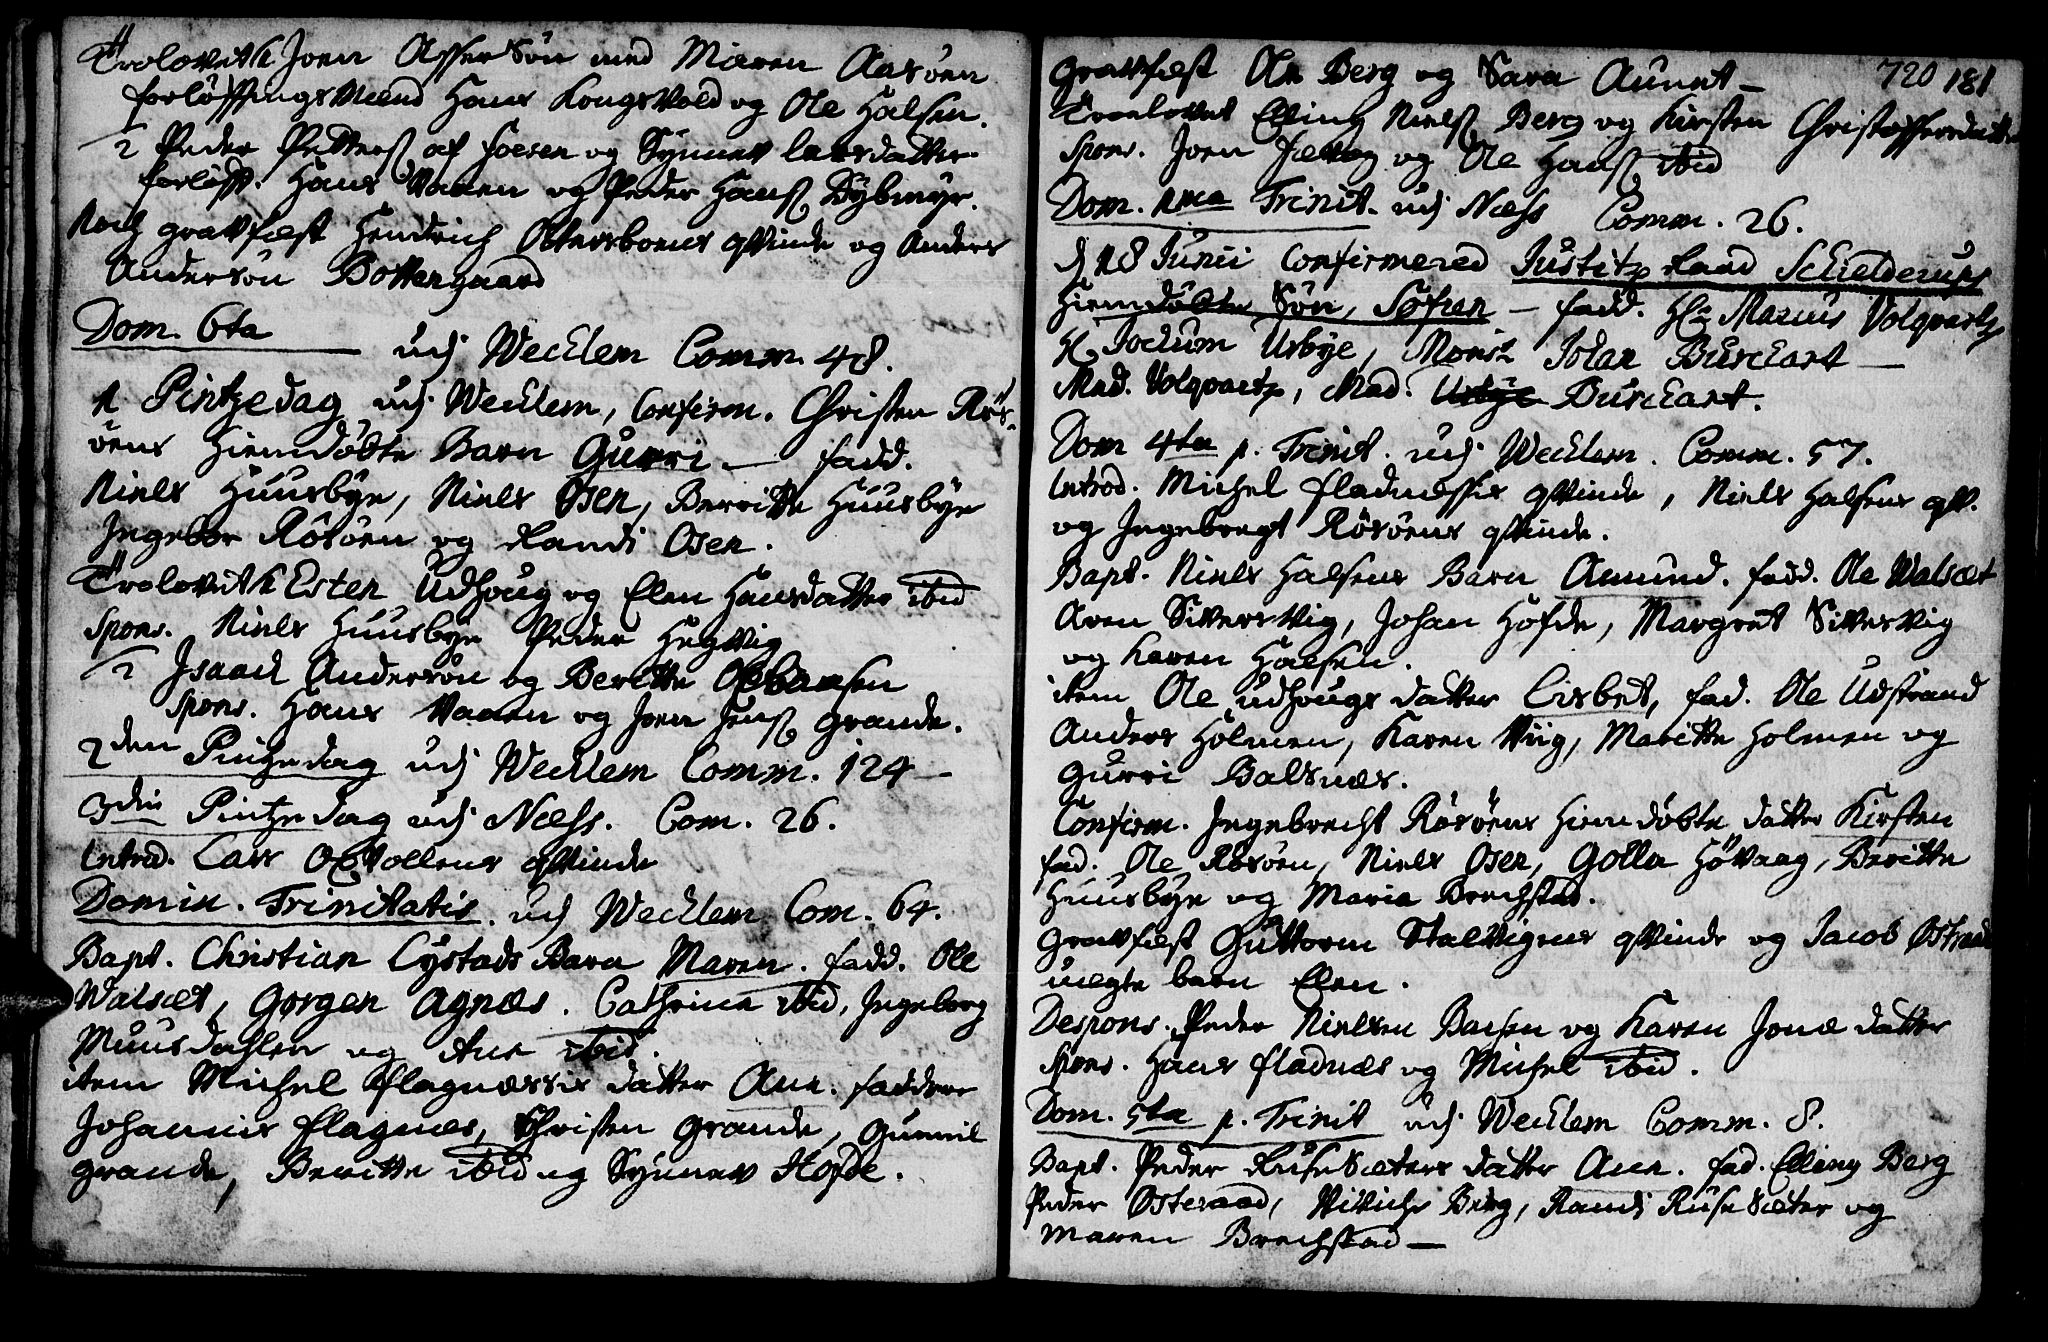 Trolovet Joen Assersön med Maren Aasöen
forlöffnings Mænd Hans Kongsvold og Ole Halsen.
2 Peder Petters af Foesen og Synnev larsdatter
forlöfft. Hans Vaaen og Peder Hans Dybmyr.
Noch gravfæst Hendrich Ottersboens qvinde og Anders
Andersön Bottengaard
Dom. 6ta udj Wecklem Comm. 48.
1 Pintzedag udj Wecklem, Confirm. Christen Rös-
öens Hiemdöbte Barn Gurri — fadd.
Niels Huusbye, Niels Osen, Beritte Huusbye
Ingebor Rösöen og Randi Osen.
Trolovet 1 Esten Udhoug og Elen Hansdatter ibid
Spons. Niels Huusbye Peder Hegvig
2 Isaach Andersön og Beritte
Spons. Hans Vaaen og Joen Jens Grande.
2den Pintzedag udj Wecklem Comm. 124 —
3die Pintzedag udj Næss. Com. 26.
Introd. Lars Opvollens qvinde
Domin. Trinitatis udj Wecklem Com. 64.
Bapt. Christian Lystads Barn Maren. fadd. Ole
Walsæt, Gorgen Agnæs. Cathrina ibid, Ingeborg
Muusdahlen og Ane ibid.
item Michel Flagnæssis datter Ane. faddere
Johannis Flagnæs, Christen Grande, Gunnil
Grande, Beritte ibid og Synnev Hofde.
720 181
Gravfæst Ole Berg og Sara Aunet —
Troelovet Elling Niels Berg og Kirsten Christoffersdatter
Spons. Joen og Ole Hans ibid
Dom. 1ma Trinit. udj Næss Comm. 26.
d 18 Junii Confirmered Justitz Raad Schielderups
Hiemdöbte Sön, Söfren — fadd. Hr Marius Volqvartz
H. Jochum Usbye, Monsr Johan Burchart —
Mad. Volqvartz, Mad. Usbye Burchart.
Dom 4ta p. Trinit. udj Wecklem. Comm. 57.
Introd. Michel Fladnæssis qvinde, Niels Halsens qv.
og Ingebregt Rösöens qvinde.
Bapt. Niels Halsens Barn Amund. fadd. Ole Walsæt
Aren Sivervig, Johan Hofde, Margret Sivervig
og Karen Halsen.
item Ole udhougs datter Lisbet, fad. Ole Udstrand
Anders Holmen, Karen Viig, Maritte Holmen og
Gurri Balsnæs.
Confirm. Ingebrecht Rösöens Hiemdöbte datter Kirsten
fad. Ole Rösöen, Niels Osen, Golla Hövaag, Beritte
Huusbye og Maria Brechstad.
Gravfæst Guttorm Stalvigens qvinde og Jacob
uægte barn Elen.
Despons. Peder Nielsen og Karen Jonæ datter
Spons. Hans Fladnæs og Michel ibid.
Dom. 5ta p. Trinit udj Wecklem Comm. 8.
Bapt. Peder Rusesæters datter Ane. fad. Elling Berg
Peder Osteraad, Berg, Randi Rusesæter og
Maren Brechstad —